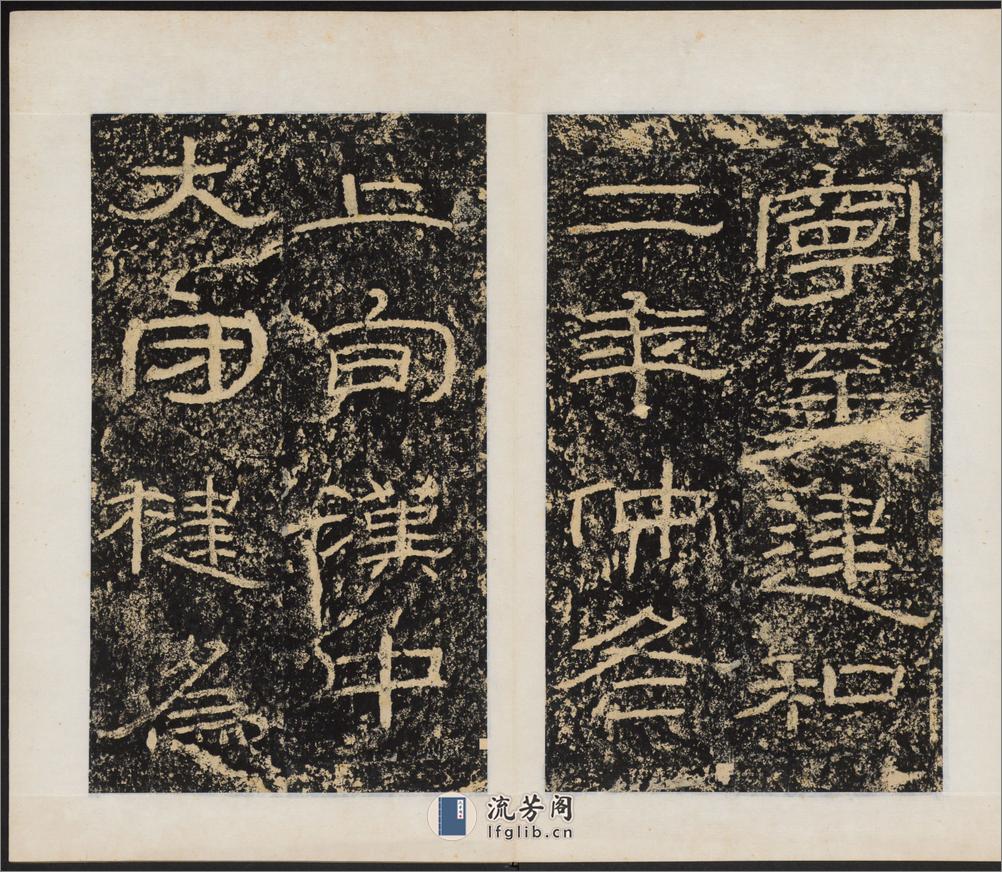 寧至建和
二年仲冬
上旬漢中
大守楗為
流芳阁
lfglib.cn